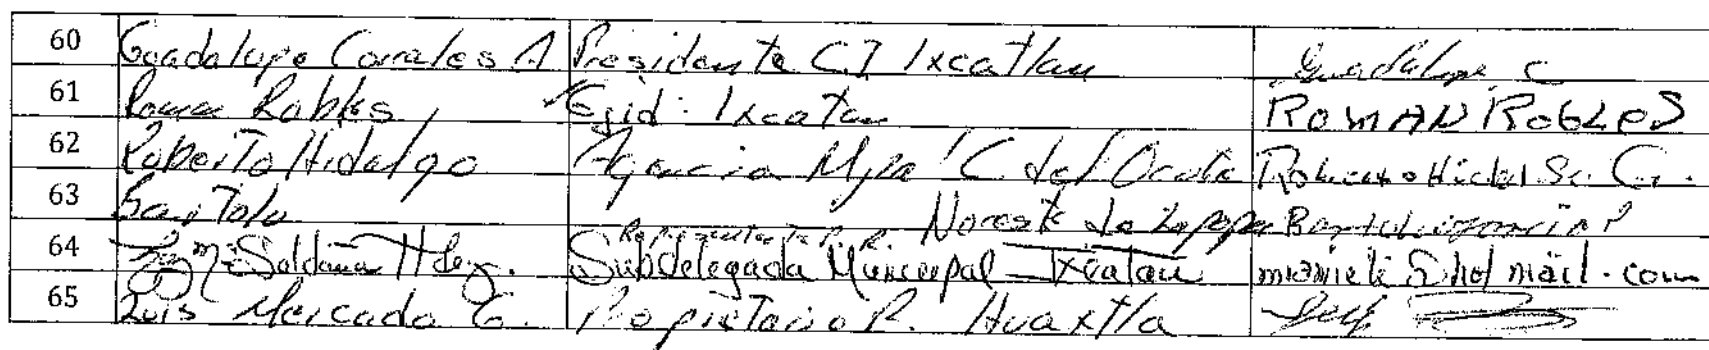 60 Guadalupe Corrales A Presidente C.I Ixcatlan Guadalupe C
61 Roman Robles Ejid. Ixcatan ROMAN ROBLES
62 Roberto Hidalgo Agencia Mpal C del Ocote Roberto Hidal
63 Bartolo Representante P.R. Noreste de Zapopa
64 Saldaña Hdez. Subdelegada Municipal Ixcatan
65 Luis Mercado G. Propietario R. Huaxtla